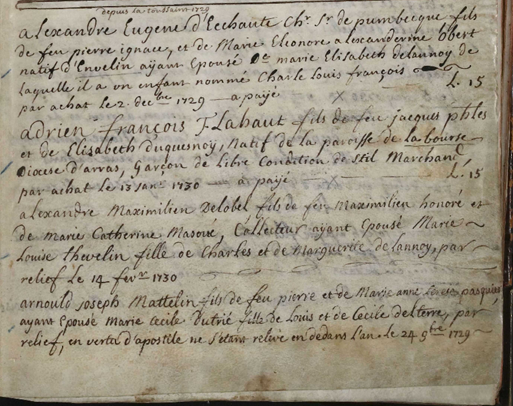 depuis la toussaint 1729
alexandre Eugene d'Eechaute Chr. Sr. de pumbecque fils
de feu pierre ignace, et de Marie Eleonore alexanderine Obert
natif d'Envelin ayant Epousé De. marie Elisabeth delaunoy de
laquelle il a un enfant nommé Charle Louis françois
par achat Le 2. decbre 1729 — a paijé × L. 15
adrien françois J. Lahaut fils de feu jacques phles
et de Elisabeth duquesnoy, Natif de la paroisse de labourse
Diocese d'arras, Garçon de Libre Condition de Stil Marchand
par achat le 13 janr. 1730 — a paijé × L. 15
alexandre Maximilien Delobel fils de feu Maximilien honoré et
de Marie Catherine Masoux, Collecteur ayant Epousé Marie
Louise Thevelin fille de Charles et de Marguerite de Lannoy, par
relief Le 14 fevr. 1730
arnould Joseph Mattelin fils de feu pierre et de Marie anne pasquier
ayant Epousé Marie Cecile Dutrié fille de Louis et de Cecile delterre, par
relief, en vertu d'apostile ne s'etant relivé en dedans L'an. Le 24 9bre 1729